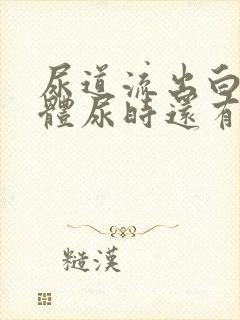 尿道流出白
體尿時還有
糙漢